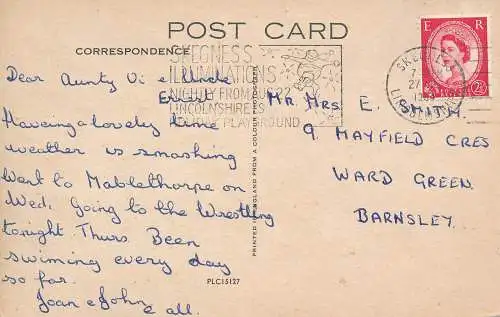 POST CARD
CORRESPONDENCE
SKEGNESS
ILLUMINATIONS
NIGHTLY FROM AUG 22
LINCOLNSHIRE'S
PLAYGROUND
E R
2½
Dear Aunty Vi e Uncle
Ernest
Haveing a lovely time
weather is smashing
Went to Mablethorpe on
Wed, Going to the Wrestling
tonight Thurs. Been
swiming every day
so far.
Joan e John
e all.
Mr. Mrs. E. SMITH
9 MAYFIELD CRES
WARD GREEN.
BARNSLEY.
PRINTED IN ENGLAND FROM A COLOUR PHOTOGRAPH
PLC15127